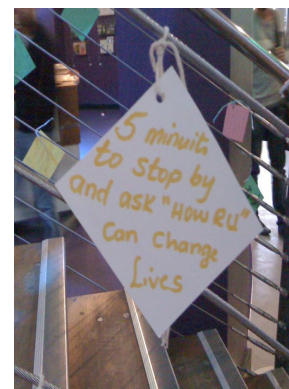 5 minuits
to stop by
and ask "How R U"
Can Change
Lives